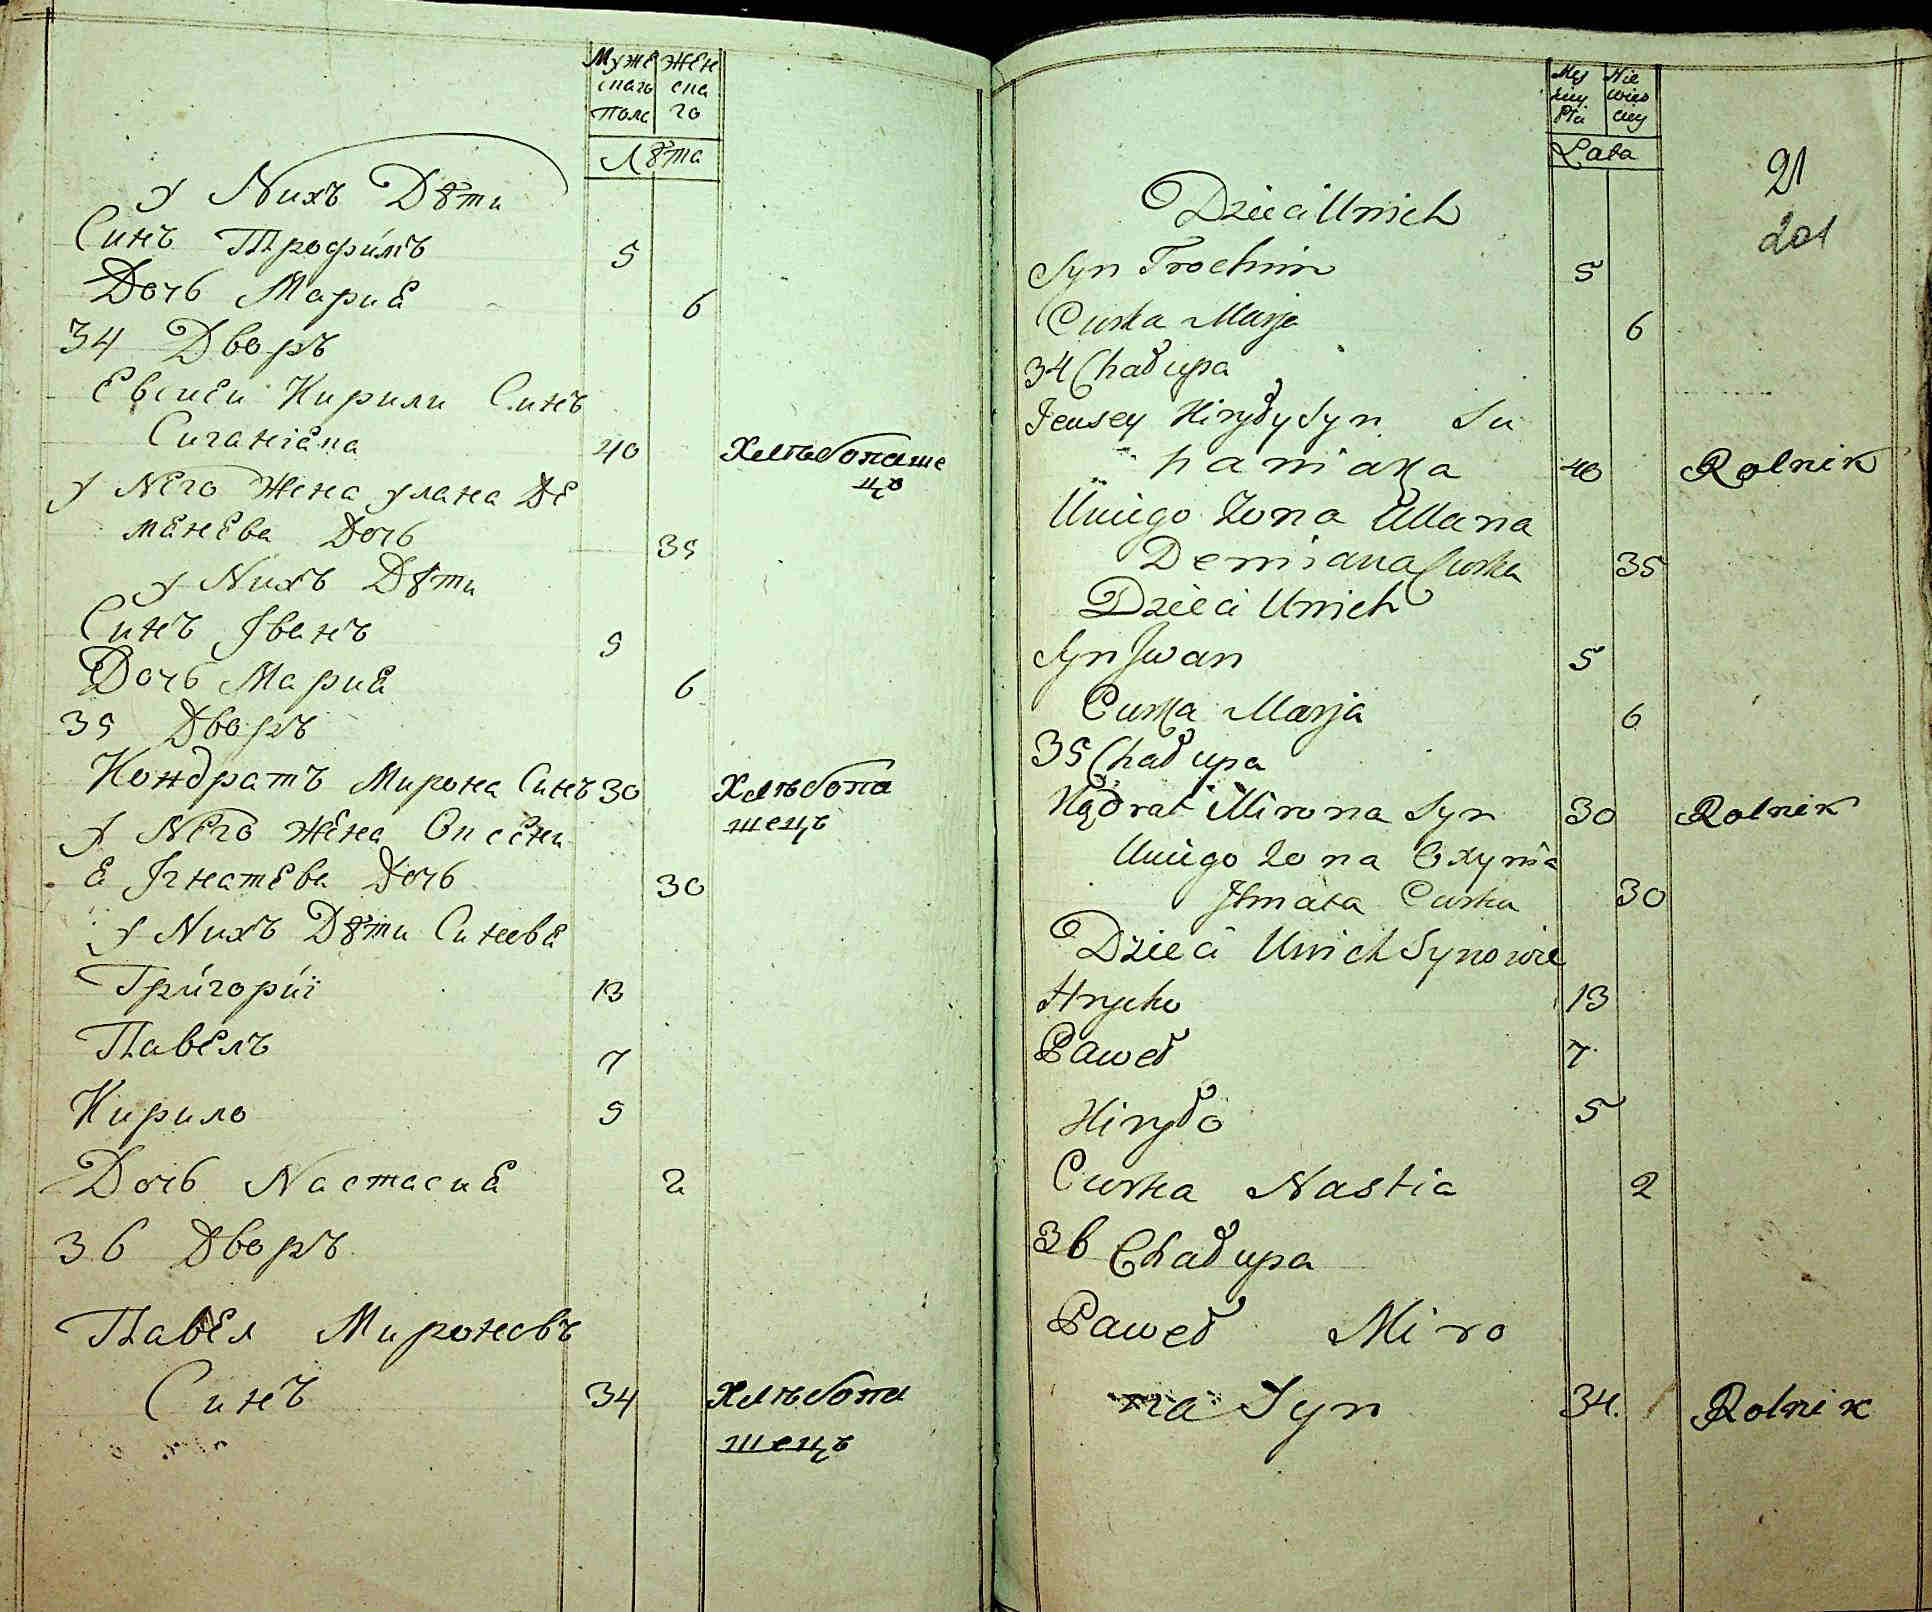 Муже Жен
скаго ска
Пола го
Лѣта
У Nихъ Дѣти
Синъ Трофимъ 5
Дочь Мариа 6
34 Дворъ
Евсией Кирили Синъ
Сиганiака 40 Хлѣбопаше
цъ
У Nего Жена улана Де
менева Дочь 35
У Nихъ Дѣти
Синъ Iванъ 5
Дочь Мариа 6
35 Дворъ
Кондратъ Мирона Синъ 30 Хлѣбопа
шецъ
У Nего Жена Оксени
а Iгнатева Дочь 30
У Nихъ Дѣти Синева
Григорiй 13
Павелъ 7
Кирило 5
Дочь Nастасиа 2
36 Дворъ
Павел Мироновъ
Синъ 34 Хлѣбопа
шецъ
Męs Nie
kiey wieś
Płci ciey
Lata
21
201
Dzieci Unich
Syn Trochim 5
Curka Marja 6
34 Chałupa
Jeusey Kiryły Syn Su
haniaka 40 Rolnik
Uniego Żona Ullana
Demiana Curka 35
Dzieci Unich
Syn Jwan 5
Curka Marja 6
35 Chałupa
Kądrat Mirona Syn 30 Rolnik
Uniego Żona Oxynia
Jhnata Curka 30
Dzieci Unich Synowie
Hryćko 13
Paweł 7
Kiryło 5
Curka Nastia 2
36 Chałupa
Paweł Miro
na Syn 34. Rolnik